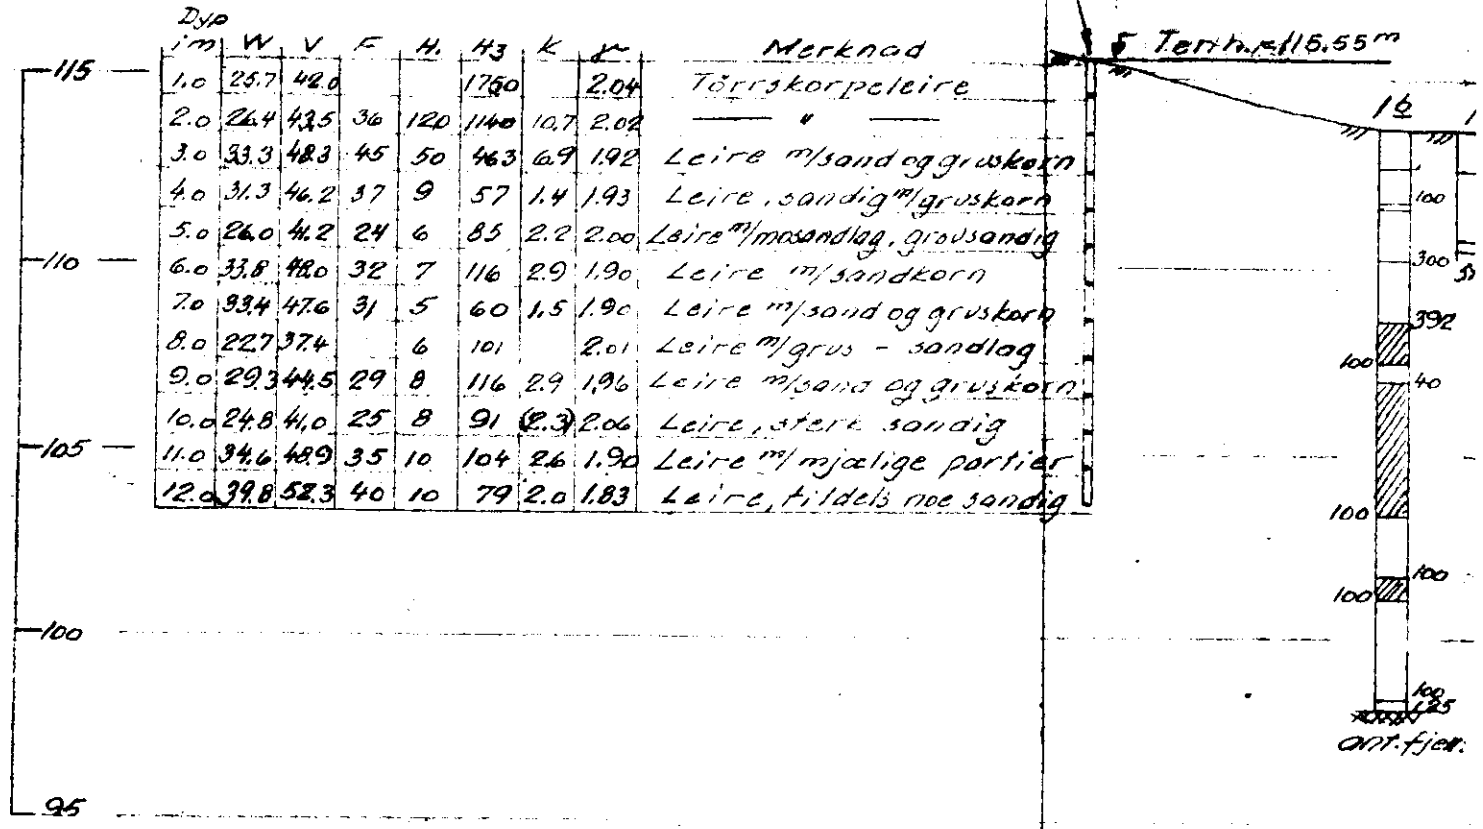 Dyp
i m W V F H. H3 K γ Merknad
1.0 25.7 42.0 1750 2.04 Törrskorpeleire
2.0 26.4 43.5 36 120 1140 10.7 2.02 — " —
3.0 33.3 48.3 45 50 463 6.9 1.92 Leire m/sand og gruskorn
4.0 31.3 46.2 37 9 57 1.4 1.93 Leire, sandig m/gruskorn
5.0 26.0 41.2 24 6 85 2.2 2.00 Leire m/mosandlag, grovsandig
6.0 33.8 48.0 32 7 116 2.9 1.90 Leire m/sandkorn
7.0 33.4 47.6 31 5 60 1.5 1.90 Leire m/sand og gruskorn
8.0 22.7 37.4 6 101 2.01 Leire m/grus - sandlag
9.0 29.3 44.5 29 8 116 2.9 1.96 Leire m/sand og gruskorn
10.0 24.8 41.0 25 8 91 (2.3) 2.06 Leire, sterk sandig
11.0 34.6 48.9 35 10 104 2.6 1.90 Leire m/mjælige partier
12.0 39.8 52.3 40 10 79 2.0 1.83 Leire, tildels noe sandig
115
110
105
100
95
5 Terr.h.=115.55m
16
100
300
392
100
40
100
100
100
100
125
ant. fjell.